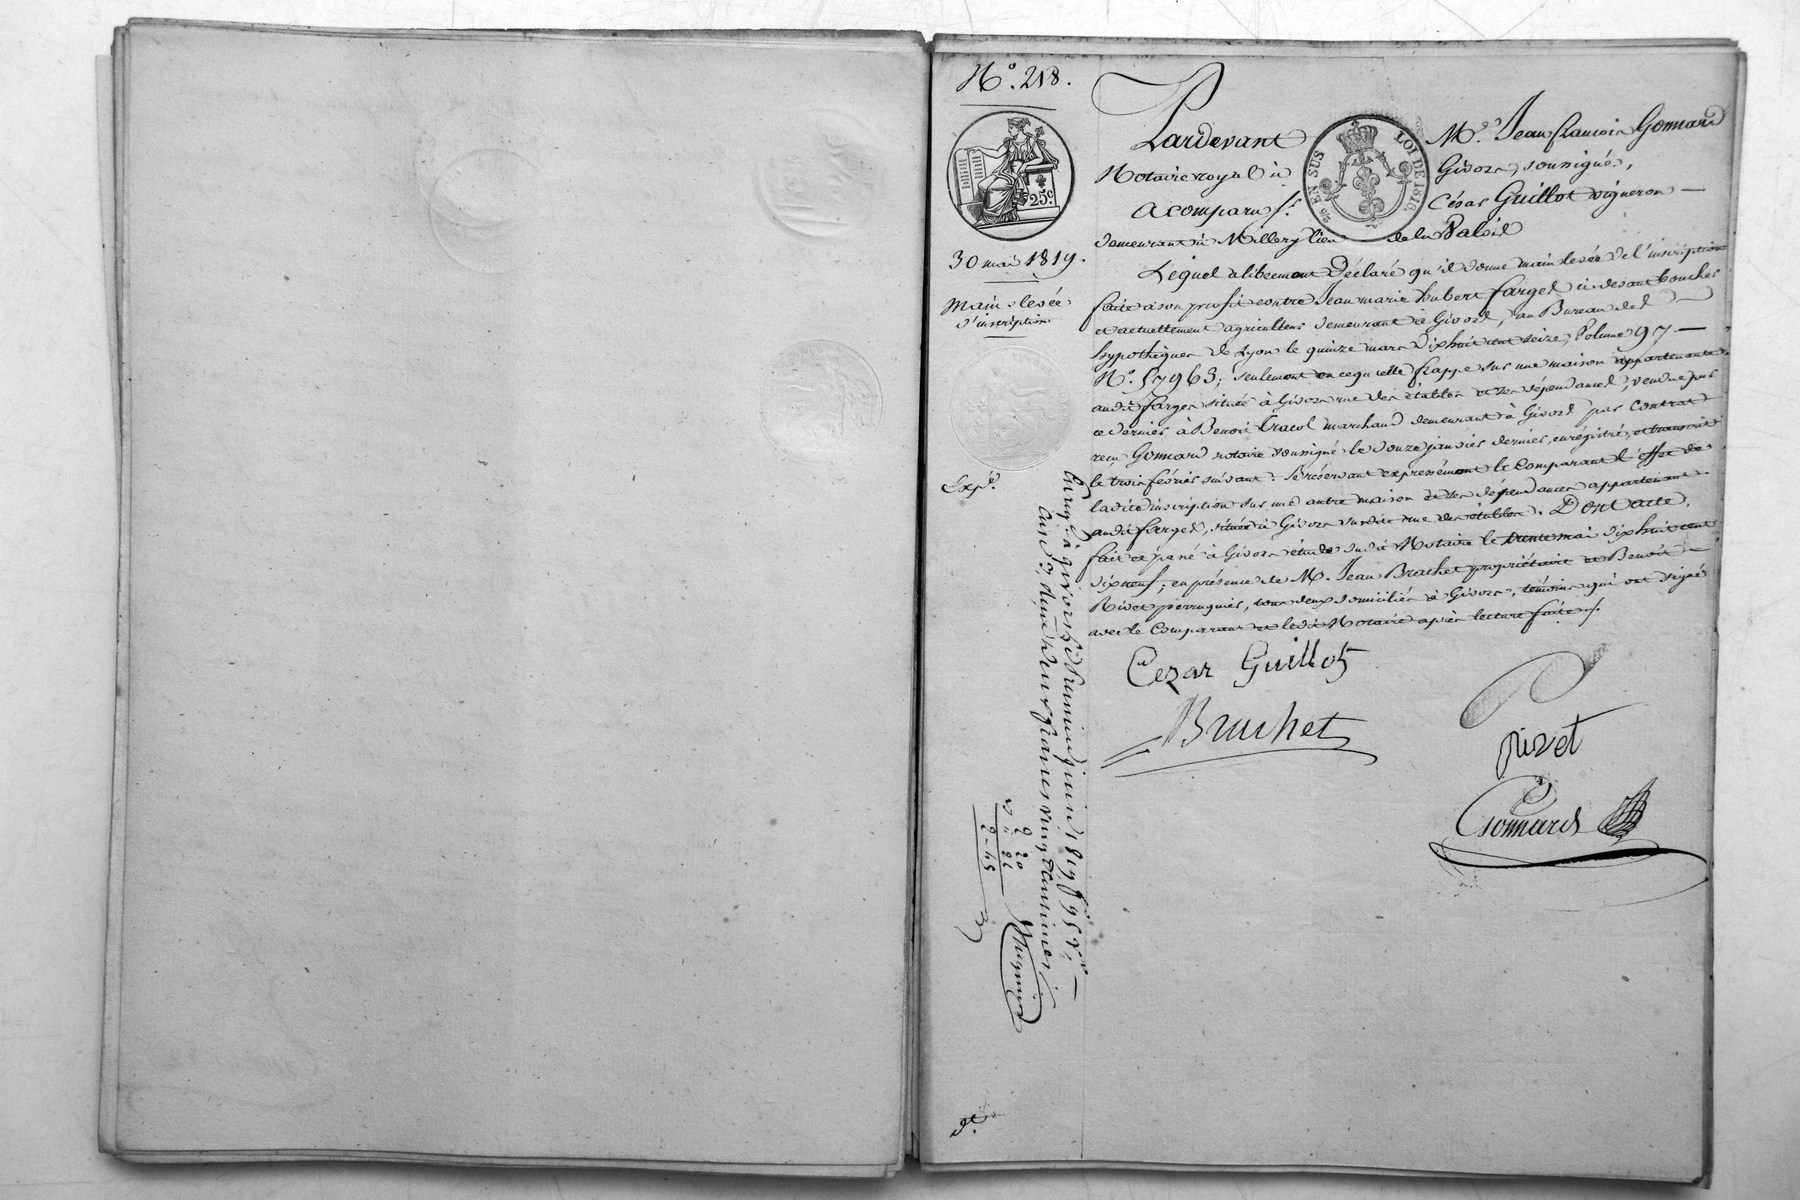 N.° 218.
25.c
30 mai 1819.
Main levée
d'inscription
Exp.e
EN SUS
LOI DE 1816
Pardevant M.e Jean francois Gonnard
Notaire royal à Givors soussigné,
a comparu s.r César Guillot vigneron —
demeurant à Millery lieu de la
Lequel a librement Déclaré qu'il donne main levée de l'inscription
faite à son profit contre Jean marie hubert farges ci-devant boucher
et actuellement agriculteur demeurant à Givors, au Bureau des
hypothèques de Lyon le quinze mars dixhuit cent seize, Volume 97 —
N.° 57963; seulement en ce qu'elle frappe sur une maison appartenante
audit farges située à Givors rue des étables et ses dépendances, vendue par
ce dernier à Benoit tracol marchand demeurant à Givors par Contrat
reçu Gonnard notaire soussigné le douze janvier dernier, enrégistré, et transcrit
le trois février suivant: Se réservant expressément le Comparant l'effet de
ladite inscription sur une autre maison et ses dépendances appartenant
audit farges, située à Givors susdite rue des étables. Dont acte,
fait et passé à Givors étude dudit Notaire le trente mai dixhuit cent
dixneuf; en présence de M. Jean Brachet propriétaire et Benoit —
Rivet perruquier, tous deux domiciliés à Givors, témoins qui ont signé
avec le Comparant et ledit Notaire après lecture faite
Cezar Guillot
Brachet
rivet
Gonnard
Enreg.é à givors le premier juin 1819
reçu deux francs vingt centimes
2 20
22
2-45